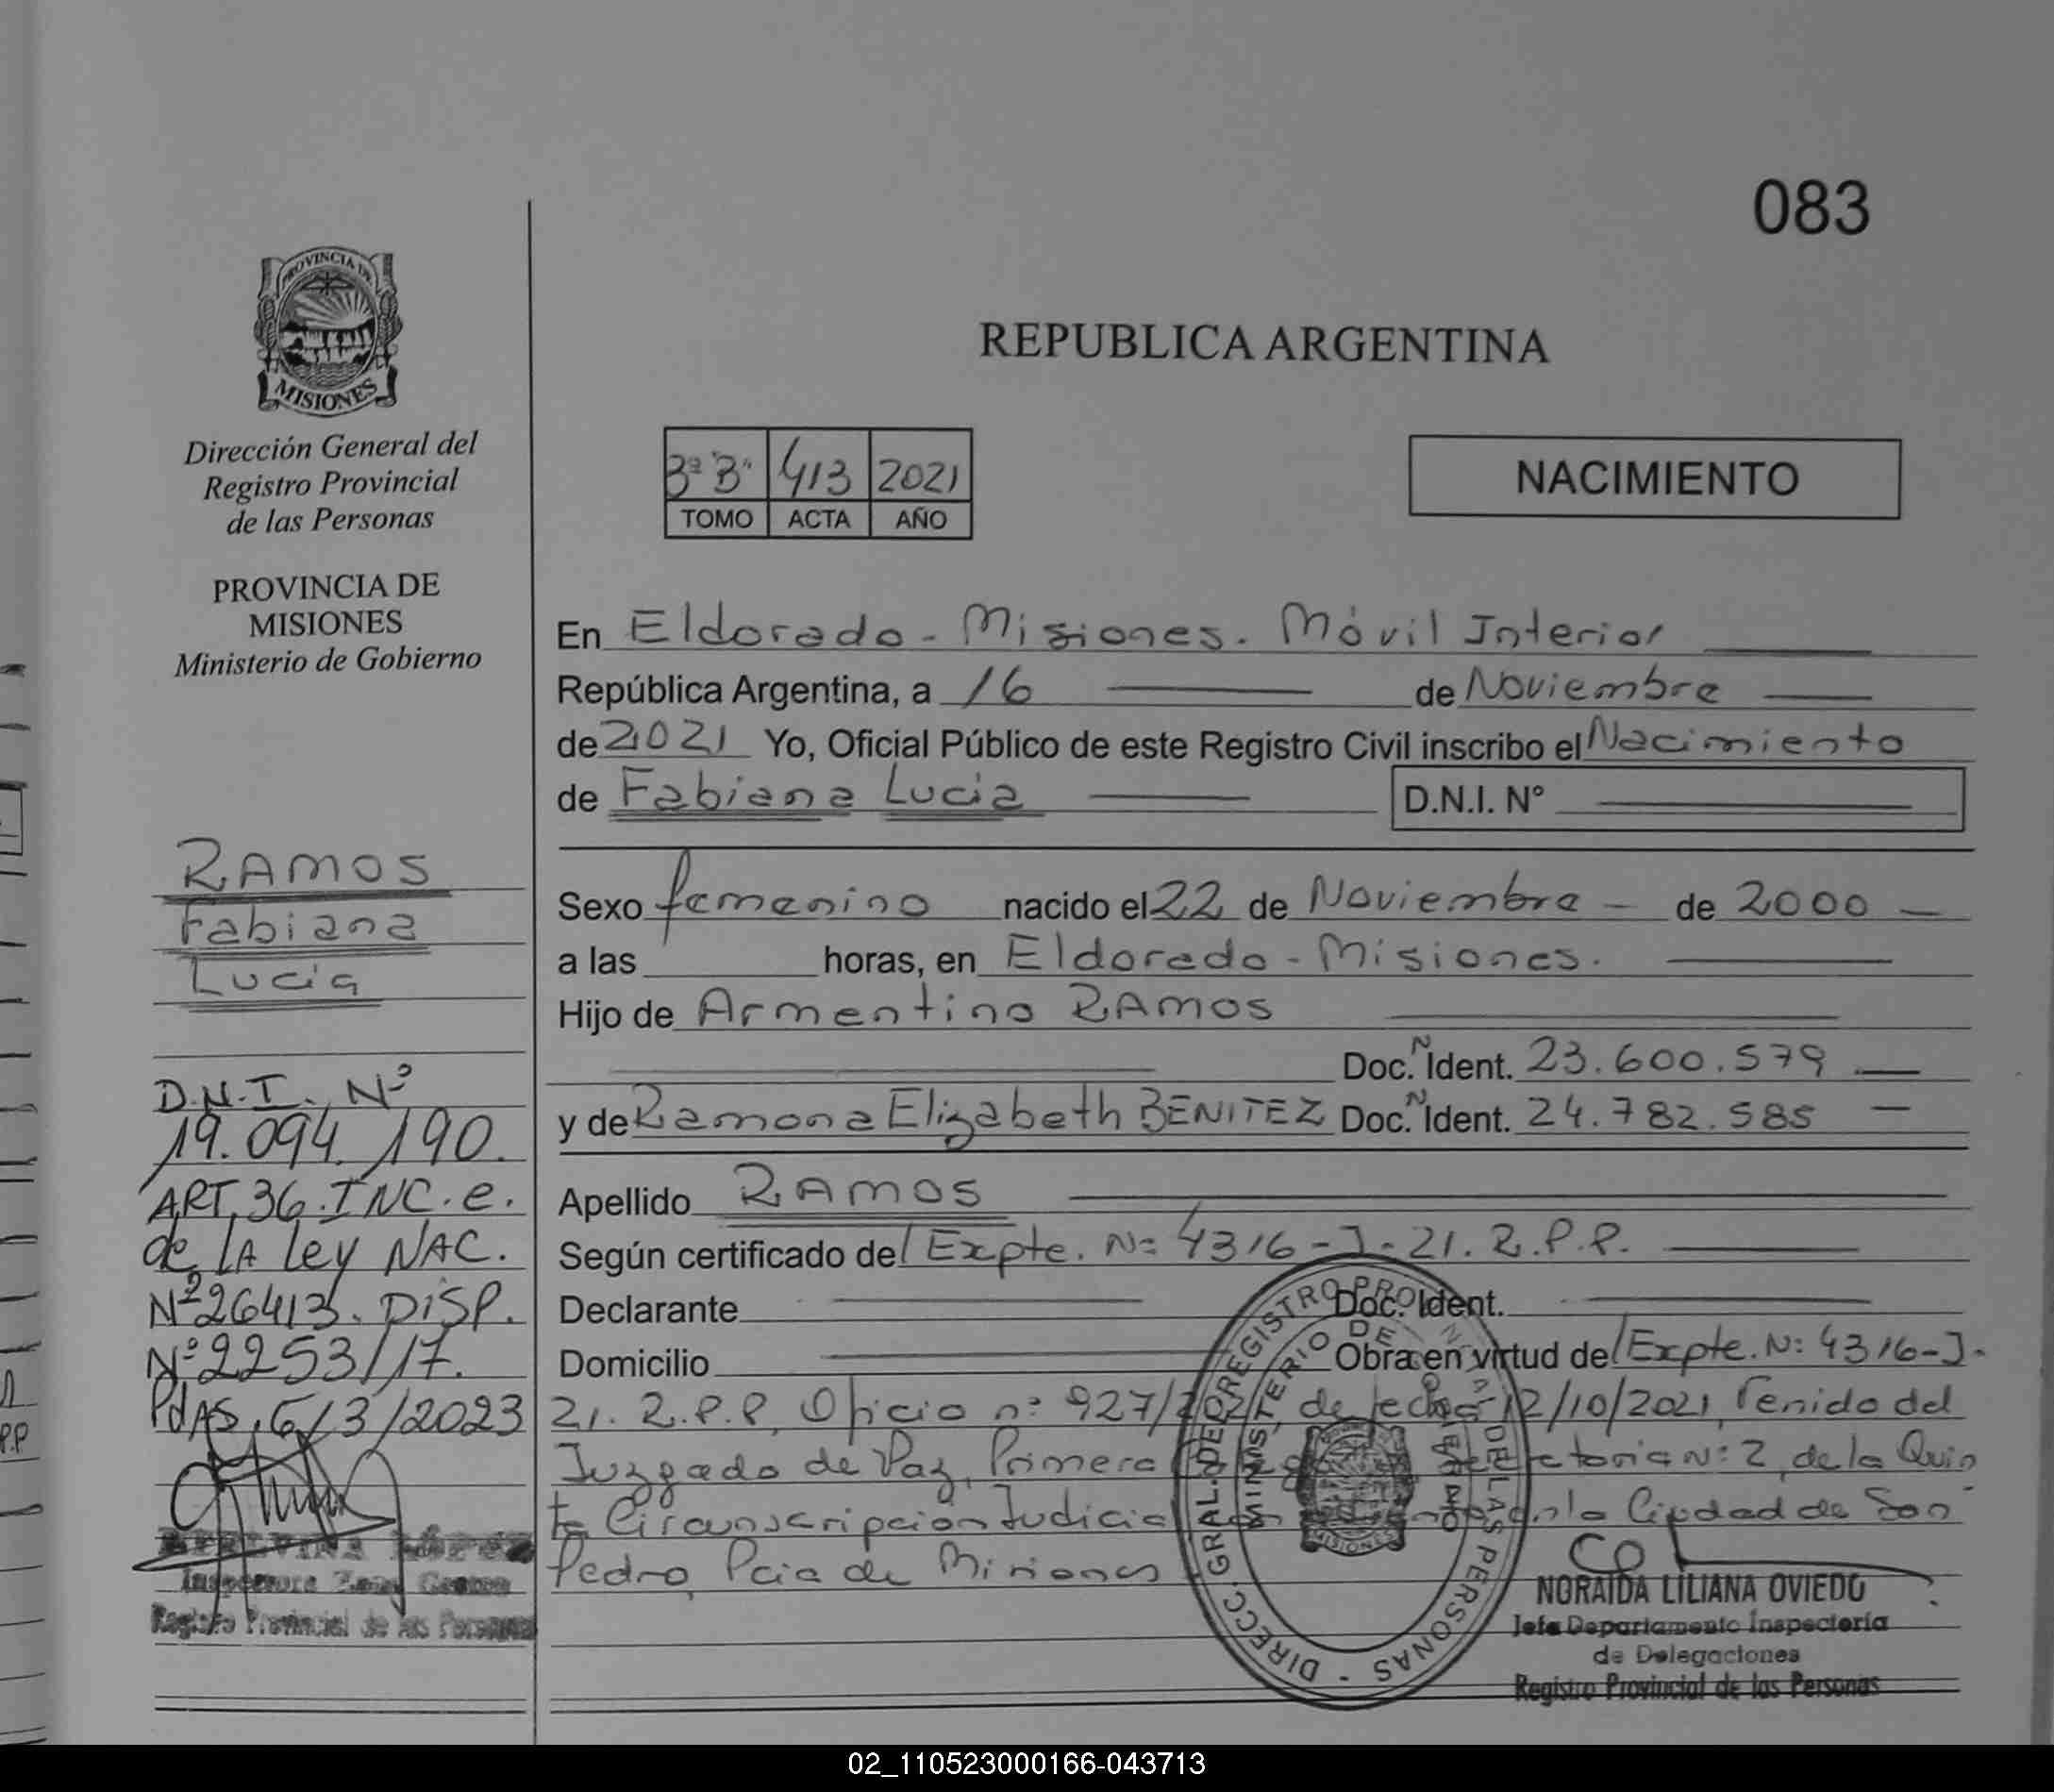 083
PROVINCIA DE
MISIONES
Dirección General del
Registro Provincial
de las Personas
PROVINCIA DE
MISIONES
Ministerio de Gobierno
RAMOS
Fabiana
Lucia
D.N.I. Nº
19.094.190.
ART. 36. INC. e.
de LA Ley NAC.
Nº 26413. DISP.
Nº 2253/17.
PdAS, 6/3/2023
López
Registro Provincial de las Personas
REPUBLICA ARGENTINA
3º "B" 413 2021
TOMO ACTA AÑO
NACIMIENTO
En Eldorado - Misiones. Móvil Interior
República Argentina, a 16 de Noviembre
de 2021 Yo, Oficial Público de este Registro Civil inscribo el Nacimiento
de Fabiana Lucia D.N.I. N°
Sexo femenino nacido el 22 de Noviembre - de 2000
a las horas, en Eldorado - Misiones.
Hijo de Armentino RAMOS
Doc. N Ident. 23.600.579
y de Ramona Elizabeth BENITEZ Doc. N Ident. 24.782.585
Apellido RAMOS
Según certificado del Expte. Nº 4316-J-21. R.P.P.
Declarante Doc. Ident.
Domicilio Obra en virtud del Expte. Nº: 4316-J-
21. R.P.P, Oficio nº 927/2021 de fecha 12/10/2021, Venido del
Juzgado de Paz, Primera Secretaria Nº: 2, de la Quin
ta Circunscripcion Judicial con en la Ciudad de San
Pedro, Pcia de Misiones
DIRECC. GRAL. DEL REGISTRO PROVINCIAL DE LAS PERSONAS -
MINISTERIO DE GOBIERNO
MISIONES
NORAIDA LILIANA OVIEDO
Jefa Departamento Inspectoría
de Delegaciones
Registro Provincial de las Personas
02_110523000166-043713